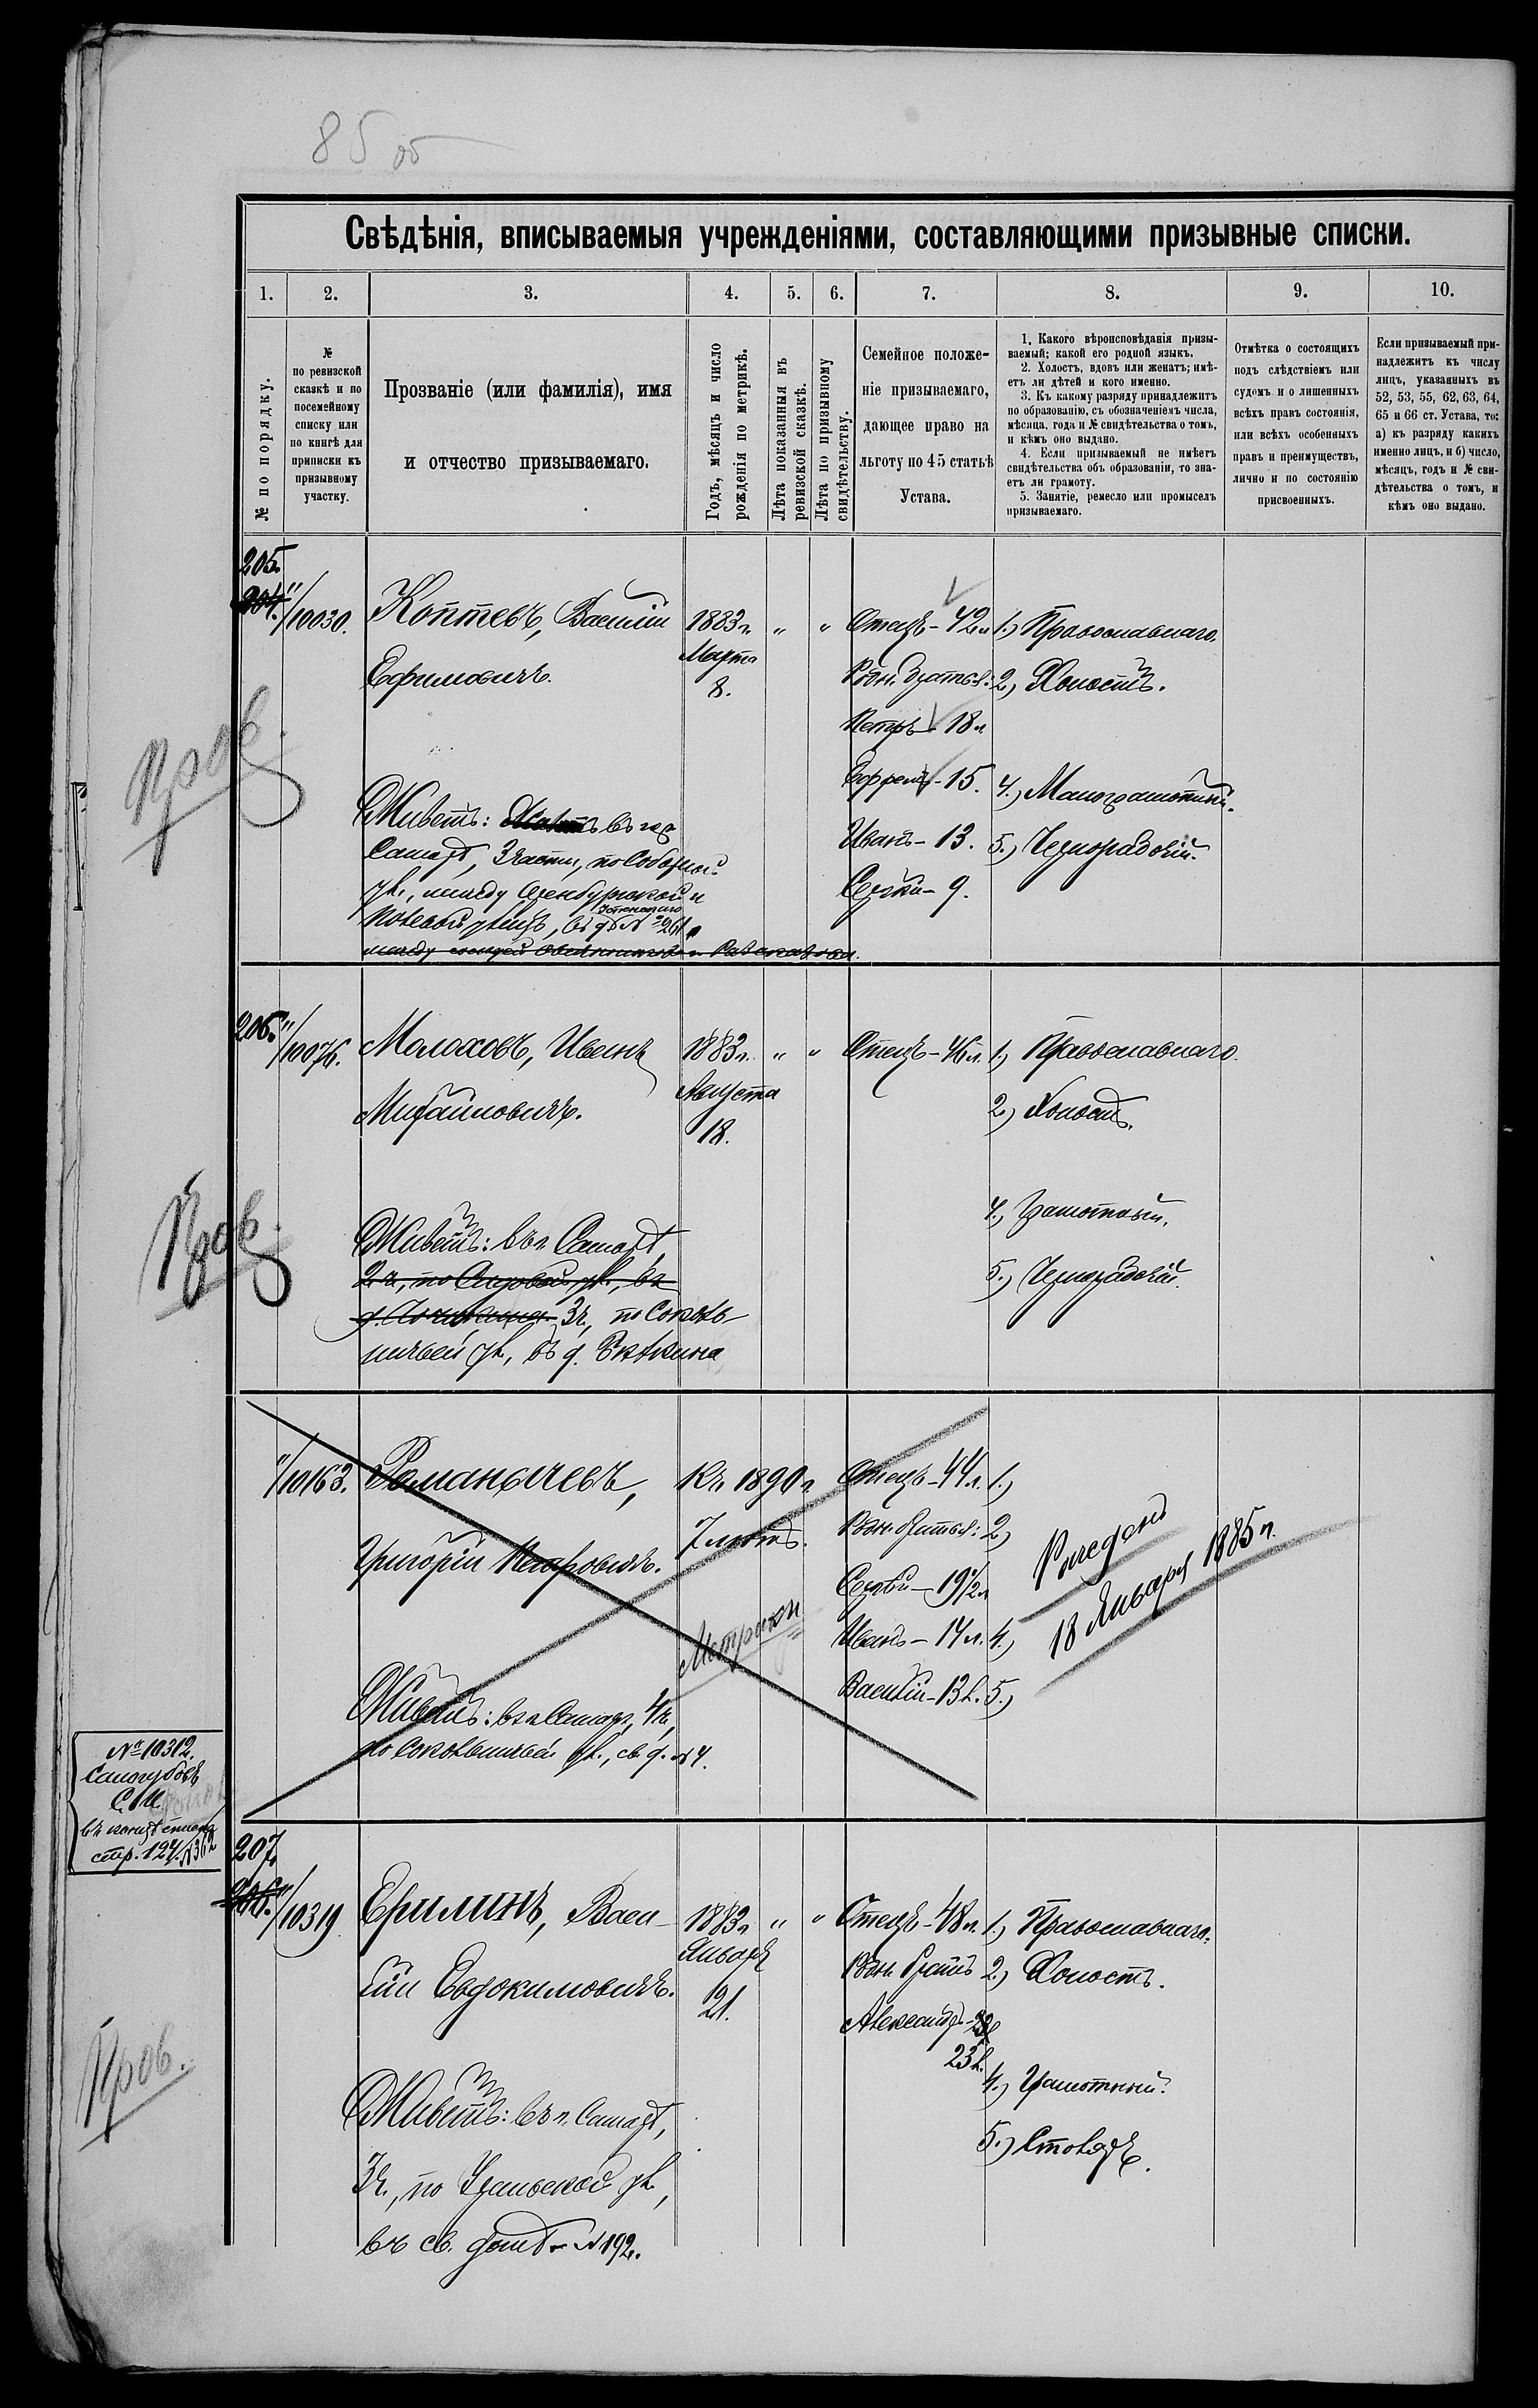 85 об
Свѣдѣнія, вписываемыя учрежденіями, составляющими призывные списки.
1. 2. 3. 4. 5. 6. 7. 8. 9. 10.
№ по порядку.
№
по ревизской
сказкѣ и по
посемейному
списку или
по книгѣ для
приписки къ
призывному
участку.
Прозваніе (или фамилія), имя
и отчество призываемаго.
Годъ, мѣсяцъ и число
рожденія по метрикѣ.
Лѣта показанныя въ
ревизской сказкѣ.
Лѣта по призывному
свидѣтельству.
Семейное положе-
ніе призываемаго,
дающее право на
льготу по 45 статьѣ
Устава.
1. Какого вѣроисповѣданія призы-
ваемый; какой его родной языкъ.
2. Холостъ, вдовъ или женатъ; имѣ-
етъ ли дѣтей и кого именно.
3. Къ какому разряду принадлежитъ
по образованію, съ обозначеніемъ числа,
мѣсяца, года и № свидѣтельства о томъ,
и кѣмъ оно выдано.
4. Если призываемый не имѣетъ
свидѣтельства объ образованіи, то зна-
етъ ли грамоту.
5. Занятіе, ремесло или промыселъ
призываемаго.
Отмѣтка о состоящихъ
подъ слѣдствіемъ или
судомъ и о лишенныхъ
всѣхъ правъ состоянія,
или всѣхъ особенныхъ
правъ и преимуществъ,
лично и по состоянію
присвоенныхъ.
Если призываемый при-
надлежитъ къ числу
лицъ, указанныхъ въ
52, 53, 55, 62, 63, 64,
65 и 66 ст. Устава, то:
а) къ разряду какихъ
именно лицъ, и б) число,
мѣсяцъ, годъ и № сви-
дѣтельства о томъ, и
кѣмъ оно выдано.
205.
204. "/10030.
Коптевъ, Василій
Ефимовичъ.
1883 г.
Марта
8.
" "
Отецъ - 42 л.
Родн. братья:
Петръ - 18 л.
Ефремъ - 15.
Иванъ - 13.
Сергѣй - 9.
1.) Православнаго.
2.) Холостъ.
4.) Малограмотный.
5.) Чернорабочій.
Пров.
Живетъ: въ гор
Самарѣ, 3 части, по Соборной
ул., между Оренбургской и
Полевой улицъ, въ д. № 261
между
206. "/10076.
Молоховъ, Иванъ
Михайловичъ.
1883 г.
Августа
18.
" "
Отецъ - 46 л.
1.) Православнаго.
2.) Холостъ.
4.) Грамотный.
5.) Чернорабочій.
Пров.
Живетъ: въ г. Самарѣ,
2 ч., по ул., въ
д. 3 ч., по Соколь-
ничьей ул., въ д.
"/10163.
Романычевъ,
Григорій Петровичъ.
Къ 1890 г.
7 лѣтъ.
Метрики
Отецъ - 44 л.
Родн. братья:
Сергѣй - 19 1/2 л
Иванъ - 14 л.
Василій - 13 л.
1.)
2.)
4.)
5.)
Рожденъ
18 Января 1885 г.
Живетъ: въ г. Самарѣ, 4 ч.,
по Сокольничьей ул., св. д. № 4.
№ 10312.
Самогубовъ
С. И.
въ концѣ списка
стр. 124. № 362
207.
206. "/10319
Ерилинъ, Васи-
лій Евдокимовичъ.
1883 г.
Января
21.
" "
Отецъ - 48 л.
Родн. братъ
Александръ -
23 л.
1.) Православнаго.
2.) Холостъ.
4.) Грамотный.
5.) Столяръ.
Пров.
Живетъ: въ г. Самарѣ,
3 ч., по Уральской ул.,
въ св. домѣ - № 192.